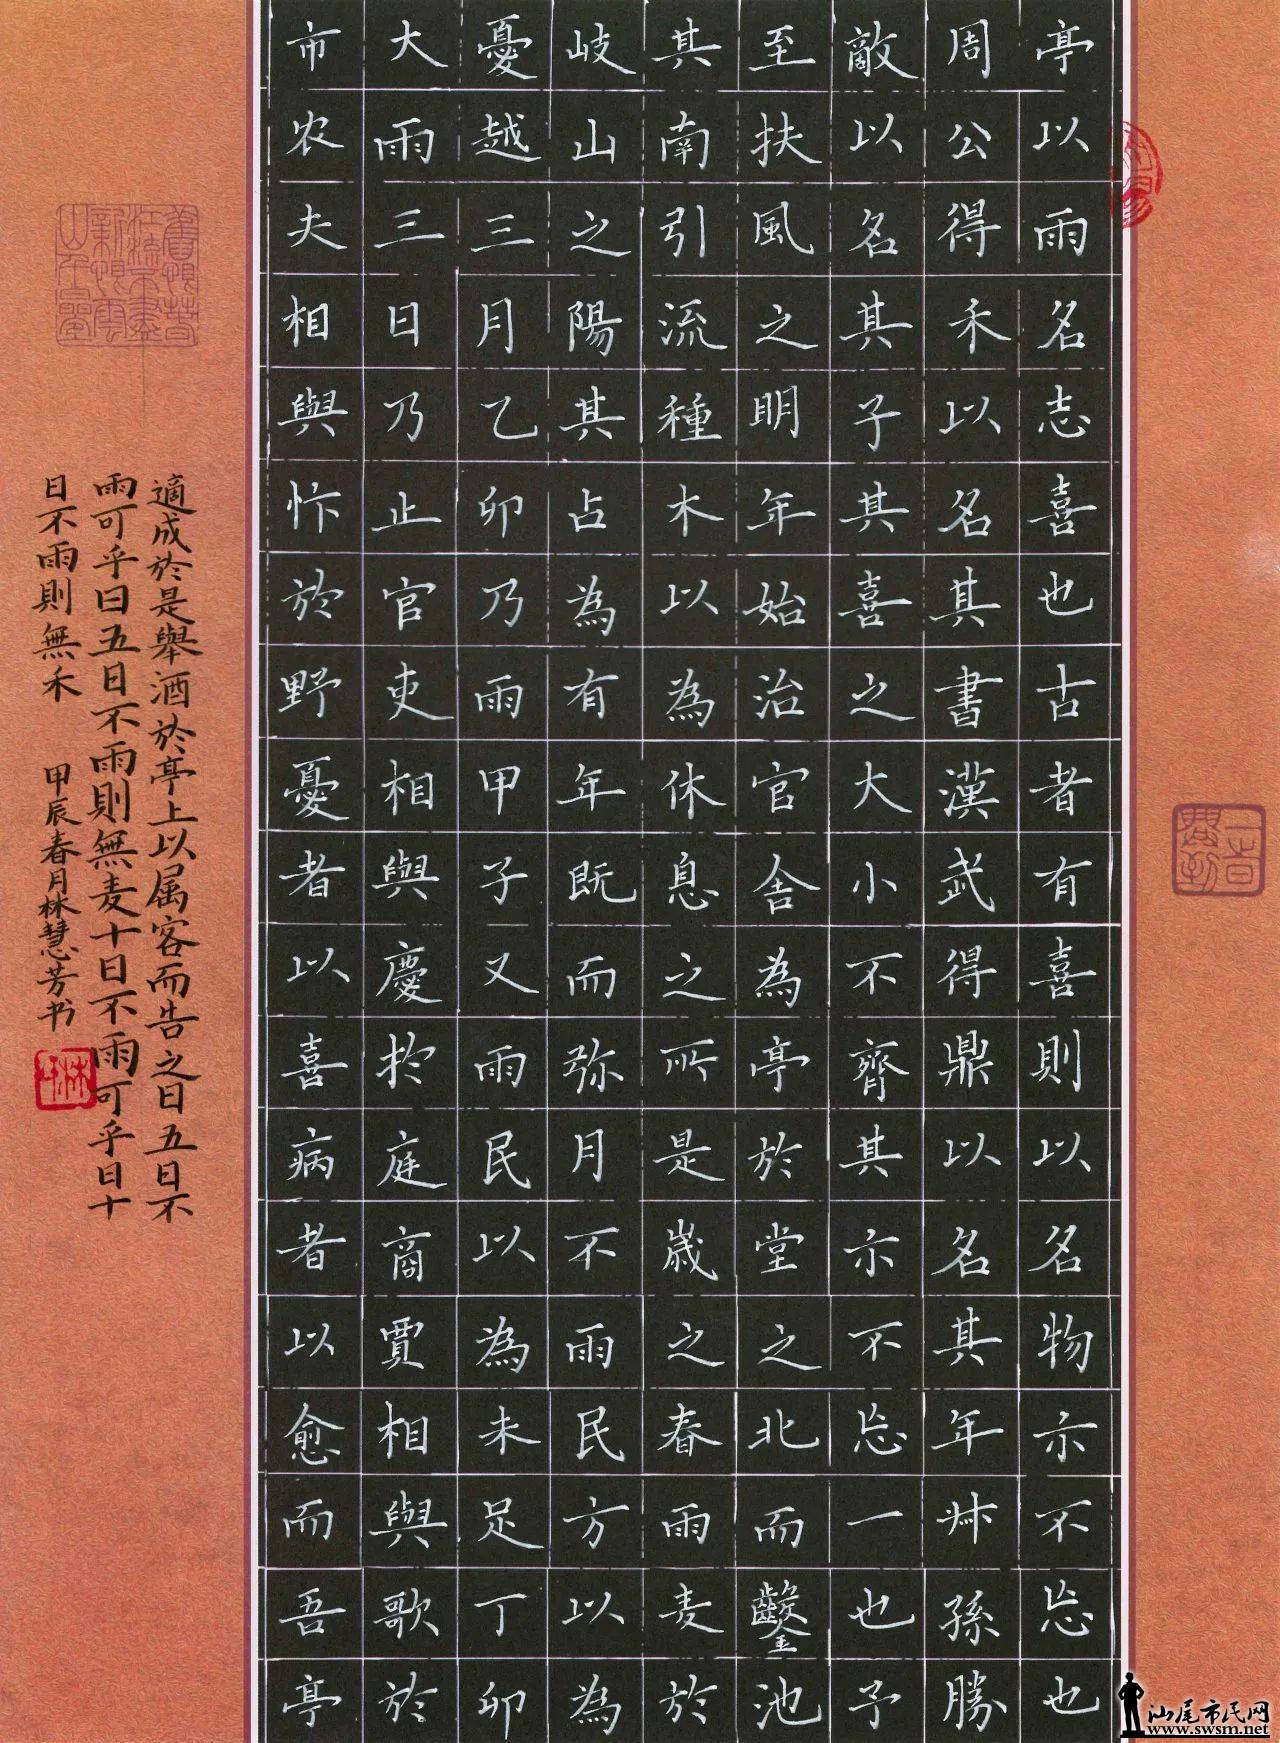 亭以雨名志喜也古者有喜則以名物示不忘也
周公得禾以名其書漢武得鼎以名其年叔孫勝
敵以名其子其喜之大小不齊其示不忘一也予
至扶風之明年始治官舍為亭於堂之北而鑿池
其南引流種木以為休息之所是歲之春雨麦於
岐山之陽其占為有年既而弥月不雨民方以為
憂越三月乙卯乃雨甲子又雨民以為未足丁卯
大雨三日乃止官吏相與慶於庭商賈相與歌於
市农夫相與忭於野憂者以喜病者以愈而吾亭
適成於是舉酒於亭上以属客而告之曰五日不
雨可乎曰五日不雨則無麦十日不雨可乎曰十
日不雨則無禾 甲辰春月林慧芳书
汕尾市民网
www.swsm.net